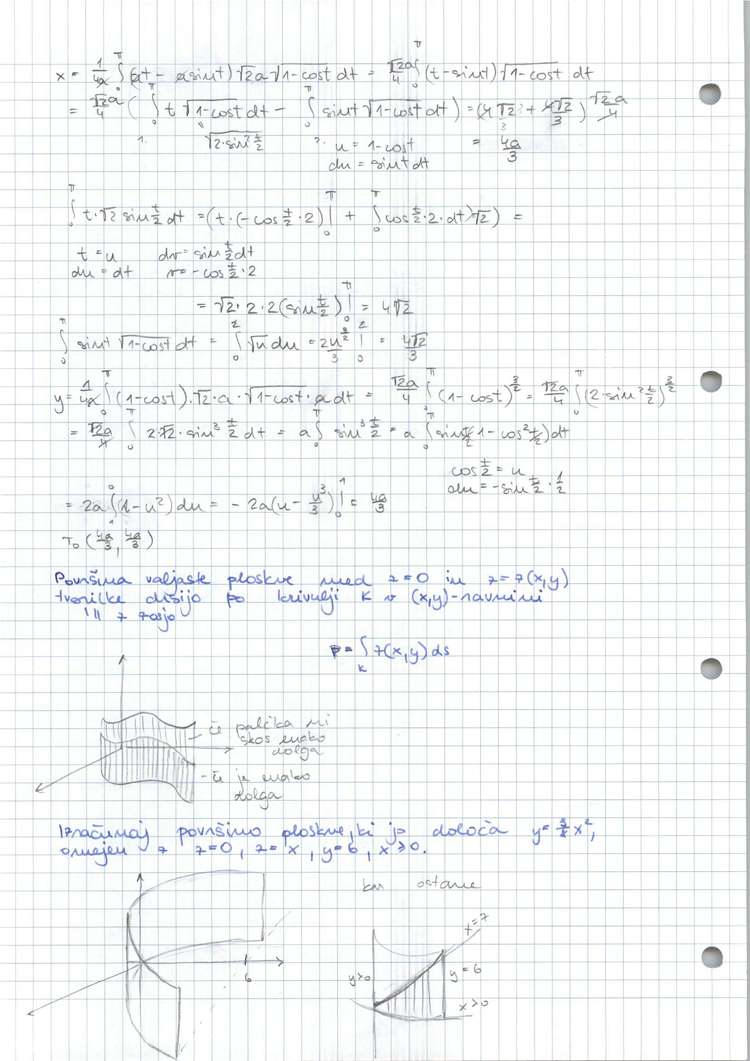 x = 1/4a ∫₀^π (at - a sint) √2a √1-cost dt = √2a/4 ∫₀^π (t-sint) √1-cost dt
= √2a/4 ( ∫₀^π t √1-cost dt - ∫₀^π sint √1-cost dt ) = (4√2 + 4√2/3) √2a/4
1. √2·sin² t/2 2. u = 1-cost = 4a/3
du = sint dt
∫₀^π t·√2 sin t/2 dt = (t·(-cos t/2·2) |₀^π + ∫₀^π cos t/2·2·dt)√2) =
t = u dv = sin t/2 dt
du = dt v = -cos t/2·2
= √2·2·2(sin t/2) |₀^π = 4√2
∫₀^π sint √1-cost dt = ∫₀² √u du = 2u^3/2 /3 |₀² = 4√2/3
y = 1/4a ∫₀^π (1-cost)·√2·a·√1-cost·a dt = √2a/4 ∫₀^π (1-cost)^3/2 = √2a/4 ∫₀^π (2·sin² t/2)^3/2
= √2a/4 ∫₀^π 2·√2·sin³ t/2 dt = a ∫₀^π sin³ t/2 = a ∫₀^π sin t/2 (1-cos² t/2) dt
cos t/2 = u
du = -sin t/2·1/2
= 2a ∫₁⁰ (1-u²) du = -2a(u - u³/3) |₀¹ = 4a/3
T₀ (4a/3, 4a/3)
Površina valjaste ploskve med z=0 in z=z(x,y)
tvorilke drsijo po krivulji K v (x,y)-ravnini
|| z zosjo
P = ∫_K z(x,y) ds
- če palčka ni
skos enako
dolga
- če je enako
dolga
Izračunaj površino ploskve, ki jo določa y= 3/8 x²,
omejen z z=0, z=x, y=6, x≥0.
kar ostane
x=z
y>0
y=6
x>0
6